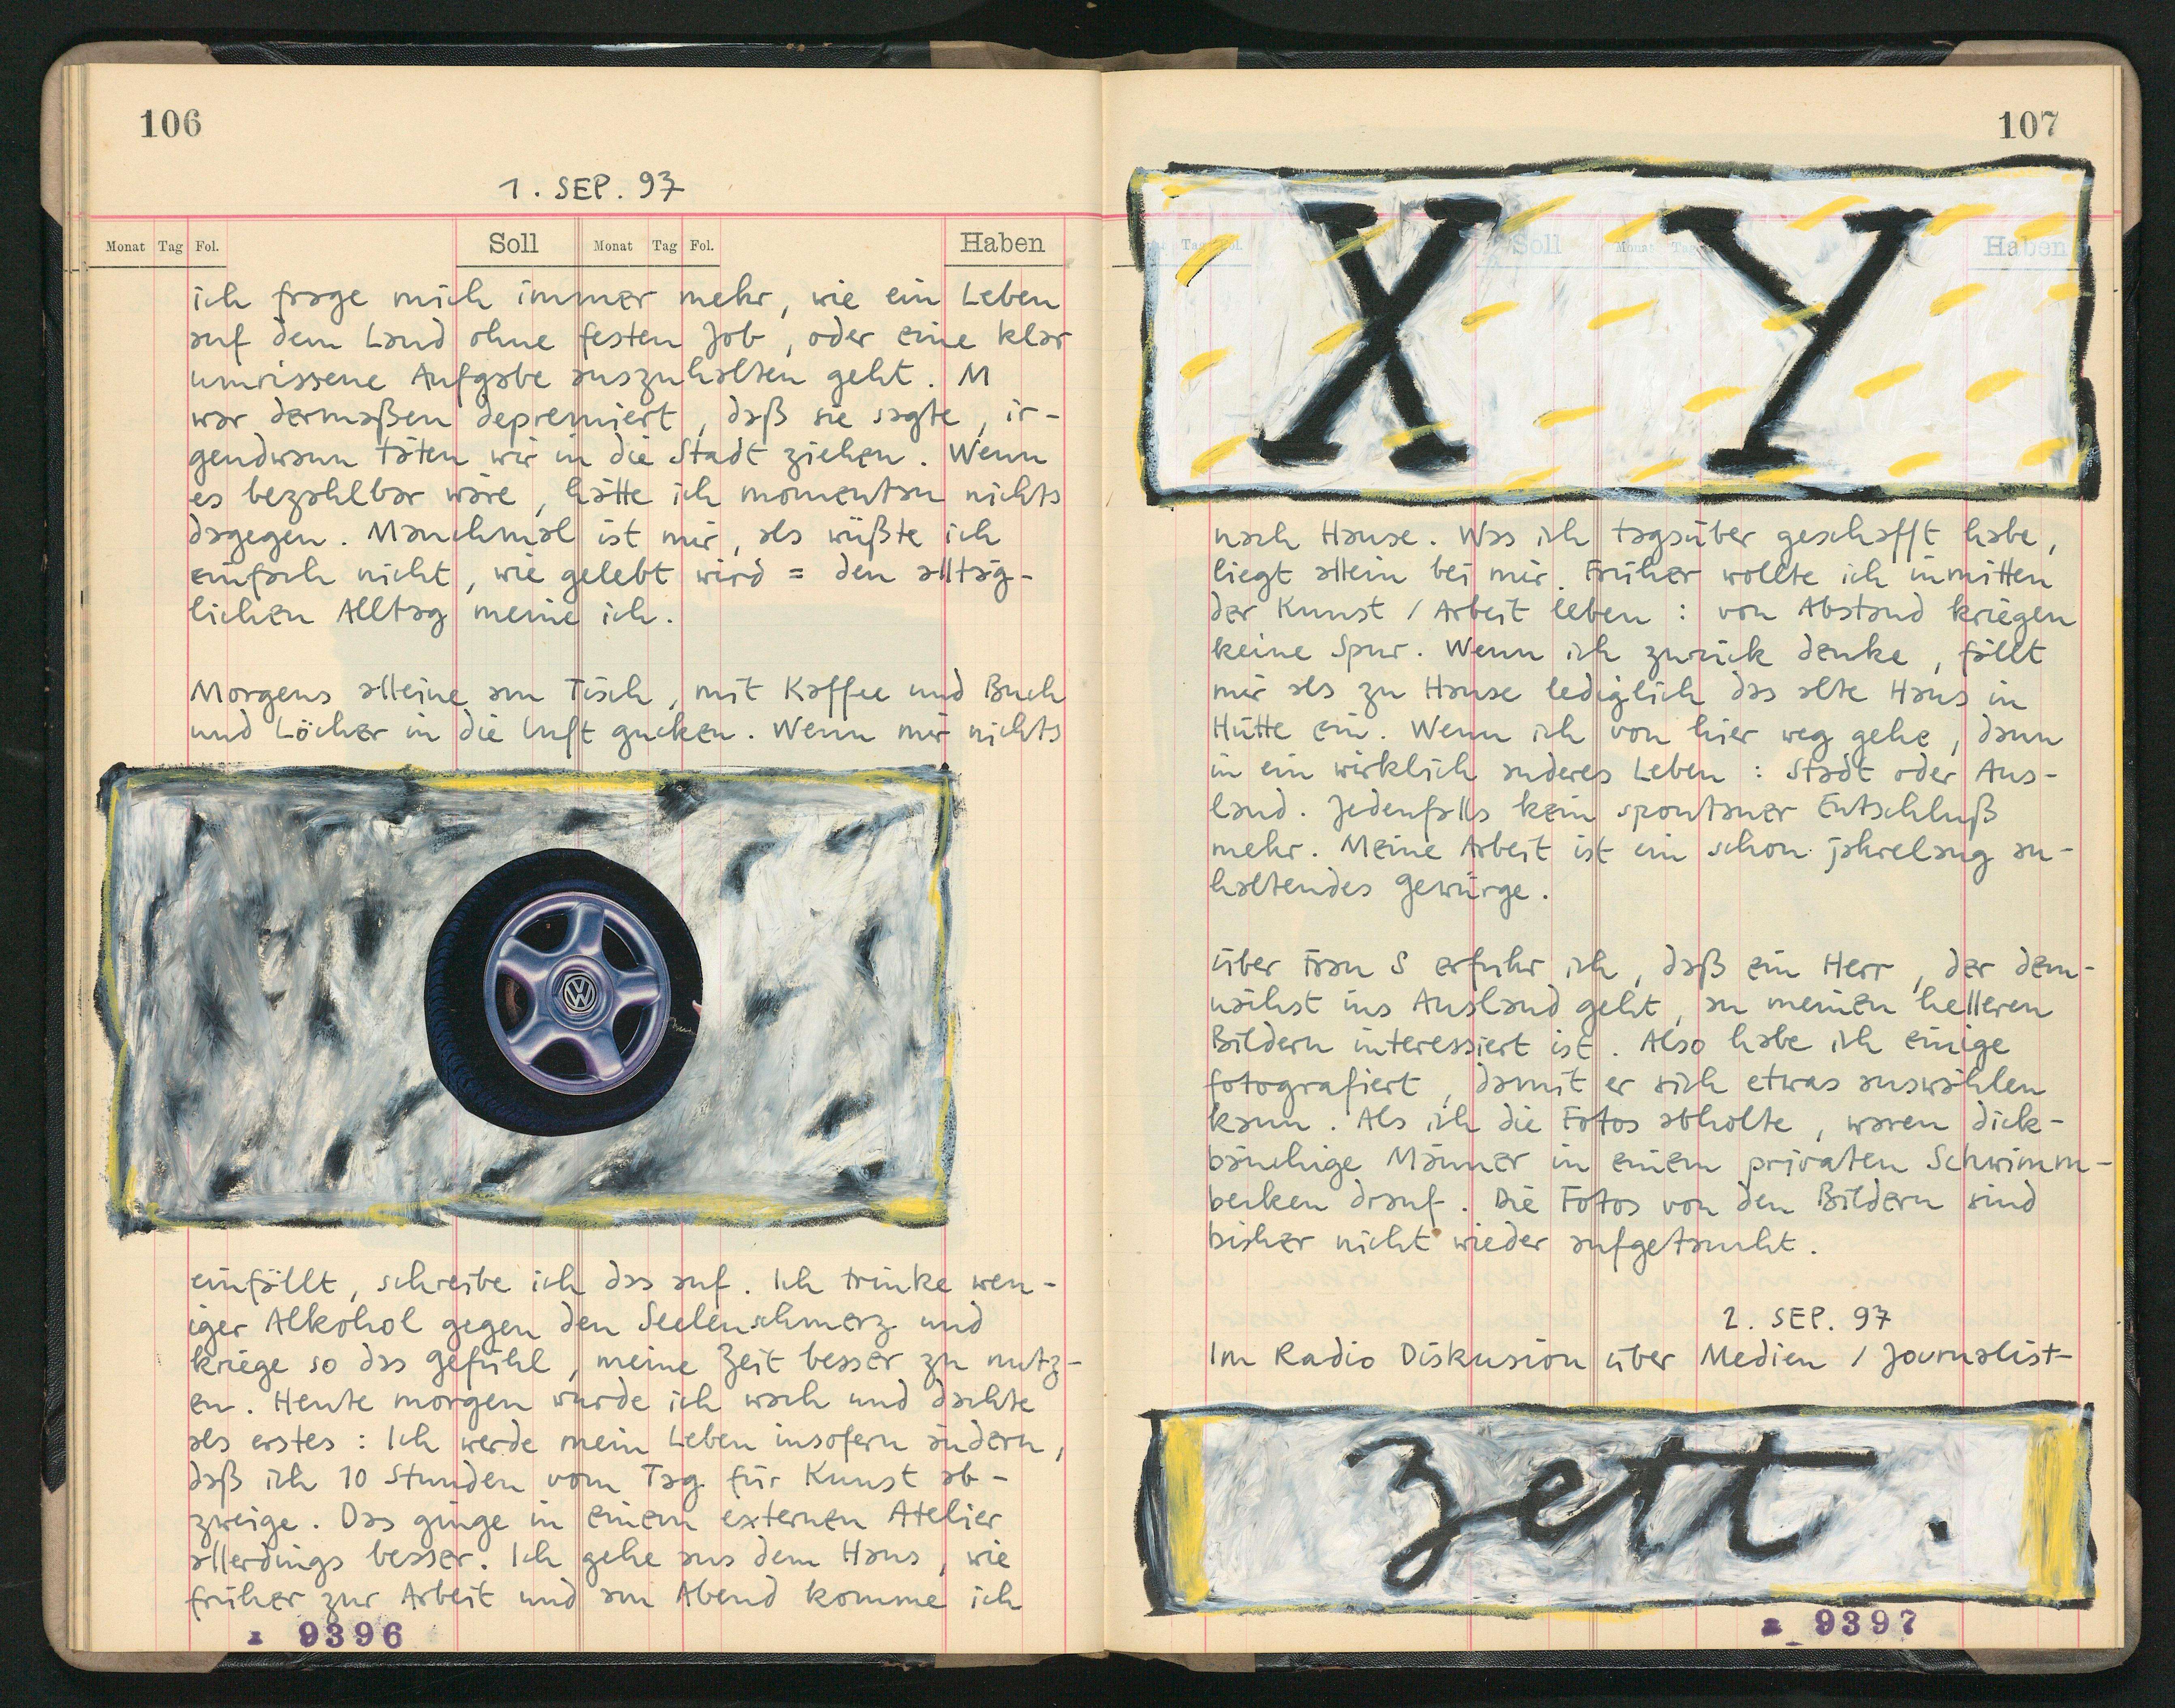 106
1. SEP. 97
Monat Tag Fol. Soll Monat Tag Fol. Haben
ich frage mich immer mehr, wie ein Leben
auf dem Land ohne festen Job, oder eine klar
umrissene Aufgabe auszuhalten geht. M
war dermaßen depremiert, daß sie sagte, ir-
gendwann täten wir in die Stadt ziehen. Wenn
es bezahlbar wäre, hätte ich momentan nichts
dagegen. Manchmal ist mir, als wüßte ich
einfach nicht, wie gelebt wird = den alltäg-
lichen Alltag meine ich.
Morgens alleine am Tisch, mit Kaffee und Buch
und Löcher in die Luft gucken. Wenn mir nichts
einfällt, schreibe ich das auf. Ich trinke wen-
iger Alkohol gegen den Seelenschmerz und
kriege so das Gefühl, meine Zeit besser zu nutz-
en. Heute morgen wurde ich wach und dachte
als erstes: Ich werde mein Leben insofern ändern,
daß ich 10 Stunden vom Tag für Kunst ab-
zweige. Das ginge in einem externen Atelier
allerdings besser. Ich gehe aus dem Haus, wie
früher zur Arbeit und am Abend komme ich
9396
107
X Y
Tag Fol. Soll Monat Tag Haben
nach Hause. Was ich tagsüber geschafft habe,
liegt allein bei mir. Früher wollte ich inmitten
der Kunst / Arbeit leben: von Abstand kriegen
keine Spur. Wenn ich zurück denke, fällt
mir als zu Hause lediglich das alte Haus in
Hütte ein. Wenn ich von hier weg gehe, dann
in ein wirklich anderes Leben: Stadt oder Aus-
land. Jedenfalls kein spontaner Entschluß
mehr. Meine Arbeit ist ein schon jahrelang an-
haltendes Gewürge.
über Frau S erfuhr ich, daß ein Herr, der dem-
nächst ins Ausland geht, an meinen helleren
Bildern interessiert ist. Also habe ich einige
fotografiert, damit er sich etwas auswählen
kann. Als ich die Fotos abholte, waren dick-
bäuchige Männer in einem privaten Schwimm-
becken drauf. Die Fotos von den Bildern sind
bisher nicht wieder aufgetaucht.
2. SEP. 97
Im Radio Diskusion über Medien / Journalist-
Zett.
9397